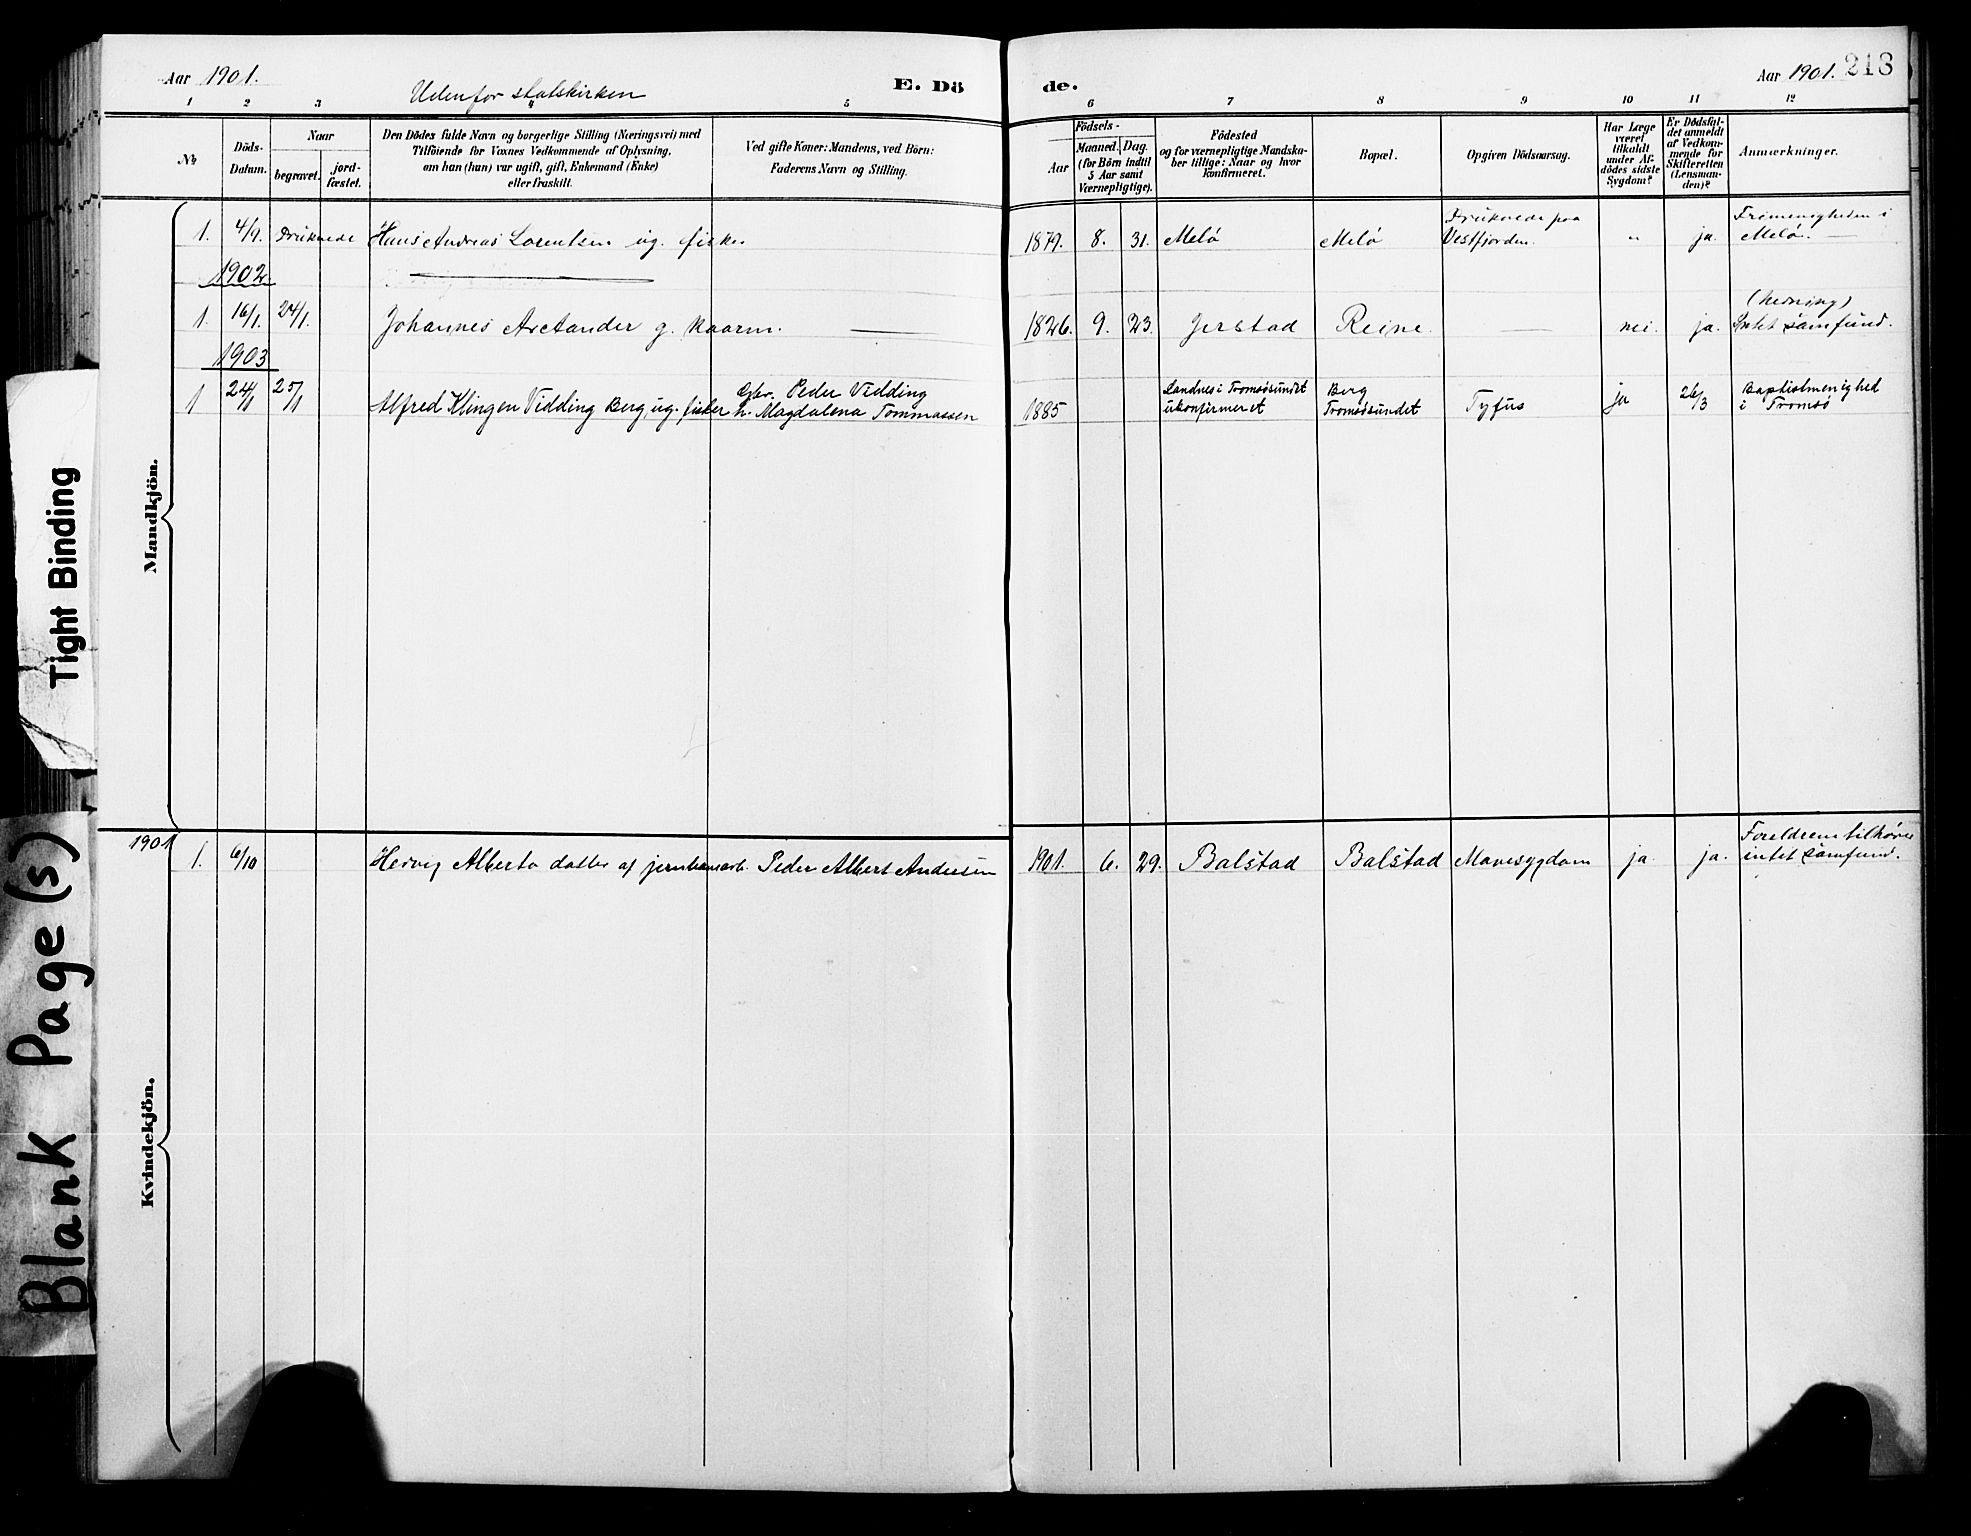 Aar 1901.
Udenfor statskirken
E. Dö
de.
Aar 1901. 213
1 2 3 4 5 6 7 8 9 10 11 12
No
Döds-
Datum.
Naar
begravet.
jord-
fæstet.
Den Dödes fulde Navn og borgerlige Stilling (Næringsvei) med
Tilföiende for Voxnes Vedkommende af Oplysning,
om han (hun) var ugift, gift, Enkemand (Enke)
eller fraskilt.
Ved gifte Koner: Mandens, ved Börn:
Faderens Navn og Stilling.
Födsels-
Aar
Maaned.
Dag.
(for Börn indtil
5 Aar samt
Værnepligtige).
Födested
og for værnepligtige Mandska-
ber tillige: Naar og hvor
konfirmeret.
Bopæl.
Opgiven Dödsaarsag.
Har Læge
været
tilkaldt
under Af-
dödes sidste
Sygdom?
Er Dödsfal-
det anmeldt
af Vedkom-
mende for
Skifteretten
(Lensman-
den)?
Anmærkninger.
Mandkjön.
1. 4/9. Druknede Hans Andreas Lorentsen ug. fisker 1879. 8. 31. Melö Melö Druknede paa Vestfjorden. " ja. Frimenigheden i Melö.
1902.
1. 16/1. 24/1. Johannes Arctander g. kaarm. 1826. 9. 23. Jerstad Reine. nei. ja. (hedning) Intet samfund.
1903
1 24/1 25/1 Alfred Klingen Vidding Berg ug. fisker Gbr. Peder Vidding h. Magdalena Tommassen 1885 Landnes i Tromsösundet ukonfirmeret Berg Tromsösundet Tyfus ja 26/3 Baptistmenighed i Tromsö
1901
Kvindekjön.
1. 6/10 Hervig Alberta datter af jernbanearb. Peder Albert Andersen 1901. 6. 29. Balstad Balstad Mavesygdom ja. ja. Foreldrene tilhörer intet samfund.
Tight Binding
Blank Page(s)